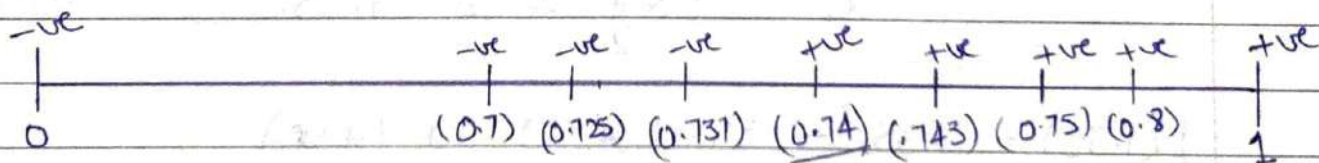 -ve -ve -ve -ve +ve +ve +ve +ve +ve
0 (0.7) (0.725) (0.737) (0.74) (.743) (0.75) (0.8) 1